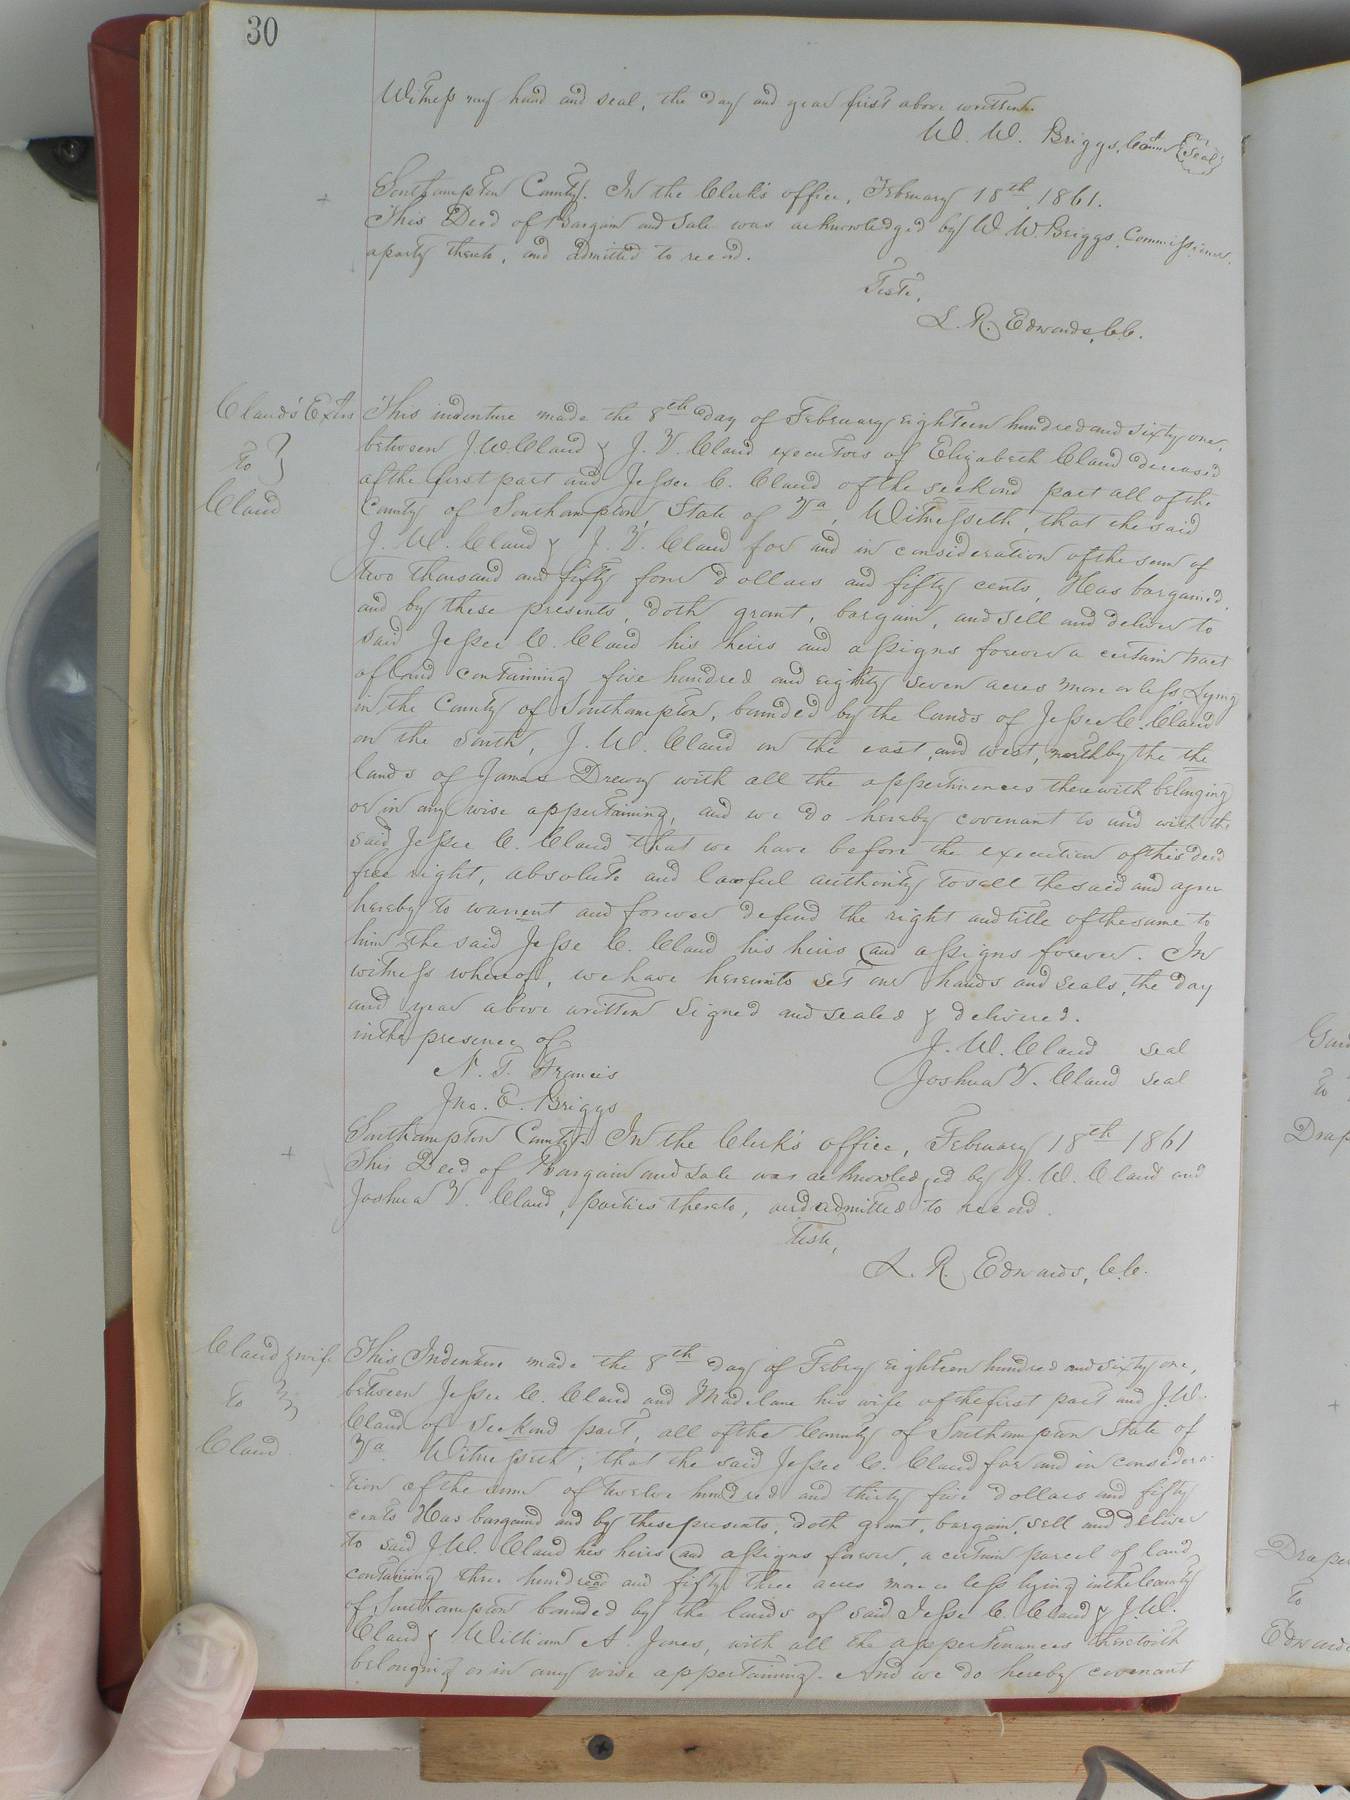 30
Witness my hand and seal, the day and year first above written.
W. W. Briggs, Comm (Seal)
Southampton County. In the Clerk's office, February 18th, 1861.
This Deed of Bargain and Sale was acknowledged by W. W. Briggs, Commissioner,
a party thereto, and admitted to record.
Teste,
L. R. Edwards, C.C.
Claud's Extrs
to
Claud
This indenture made the 8th day of February eighteen hundred and sixty one,
between J. W. Claud & J. V. Claud executors of Elizabeth Claud deceased
of the first part and Jesse C. Claud of the seckond part all of the
County of Southampton, State of Va, Witnesseth, that the said
J. W. Claud & J. V. Claud for and in consideration of the sum of
two thousand and fifty four dollars and fifty cents, Has bargained,
and by these presents, doth grant, bargain, and sell and deliver to
said Jesse C. Claud his heirs and assigns forever a certain tract
of land containing five hundred and eighty seven acres more or less Lying
in the County of Southampton, bounded by the lands of Jesse C. Claud
on the South, J. W. Claud on the east, and west, north by the the
lands of James Drewry with all the appertinences therewith belonging
or in any wise appertaining, and we do hereby covenant to and with the
said Jesse C. Claud that we have before the execution of this deed
free right, absolute and lawful authority to sell the said and agree
hereby to warrent and forever defend the right and title of the same to
him the said Jesse C. Claud his heirs and assigns forever. In
witness whereof, we have hereunto set our hands and seals, the day
and year above written Signed and sealed & delivered.
in the presence of
J. W. Claud seal
N. T. Francis
Joshua V. Claud seal
Jno. E. Briggs
Southampton County. In the Clerk's office, February 18th 1861
This Deed of Bargain and Sale was acknowledged by J. W. Claud and
Joshua V. Claud, parties thereto, and admitted to record.
Teste,
L. R. Edwards, C.C.
Claud & wife
to
Claud
This Indenture made the 8th day of Febry eighteen hundred and sixty one,
between Jesse C. Claud and Madelane his wife of the first part and J. W.
Claud of Seckond part, all of the County of Southampton State of
Va. Witnesseth, that the said Jesse C. Claud for and in considera-
tion of the sum of twelve hundred and thirty five dollars and fifty
cents Has bargaind and by these presents, doth grant, bargain, sell and deliver
to said J. W. Claud his heirs and assigns forever, a certain parcel of land
containing three hundred and fifty three acres more or less lying in the County
of Southampton bounded by the lands of said Jesse C. Claud & J. W.
Claud & William A. Jones, with all the appertenances therewith
belonging or in any wise appertaining. And we do hereby covenant
to
to